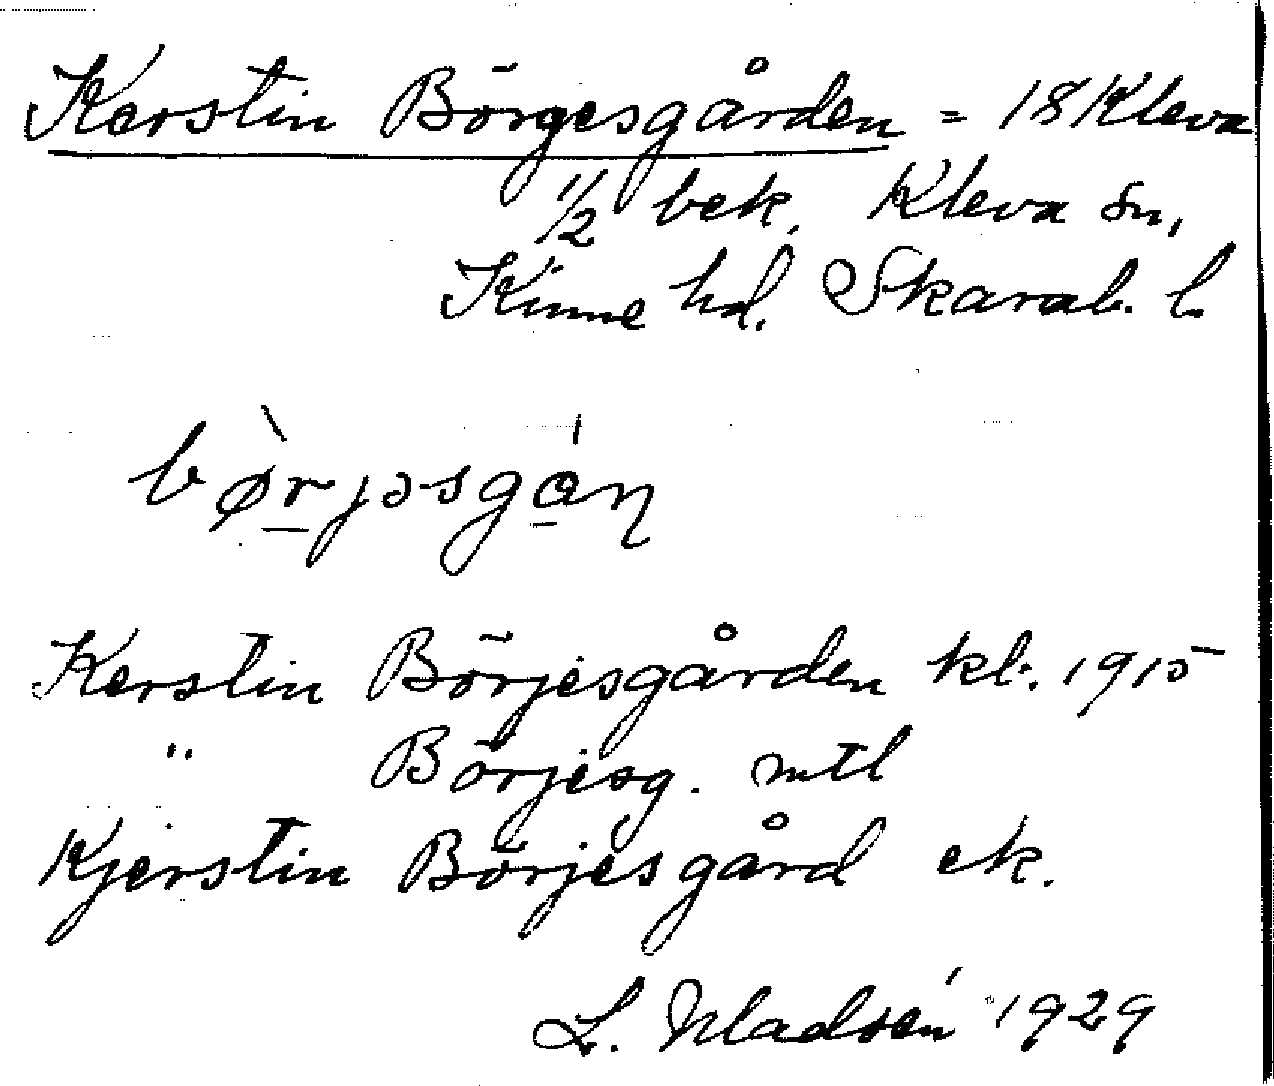 Kerstin Börgesgården = 18 Kleva
1/2 bek. Kleva sn,
Kinne hd. Skarab. l.
bø̀rjəsgán
Kerstin Börjesgården kb. 1915
" Börjesg. mtl
Kjerstin Börjesgård ek.
L. 1929